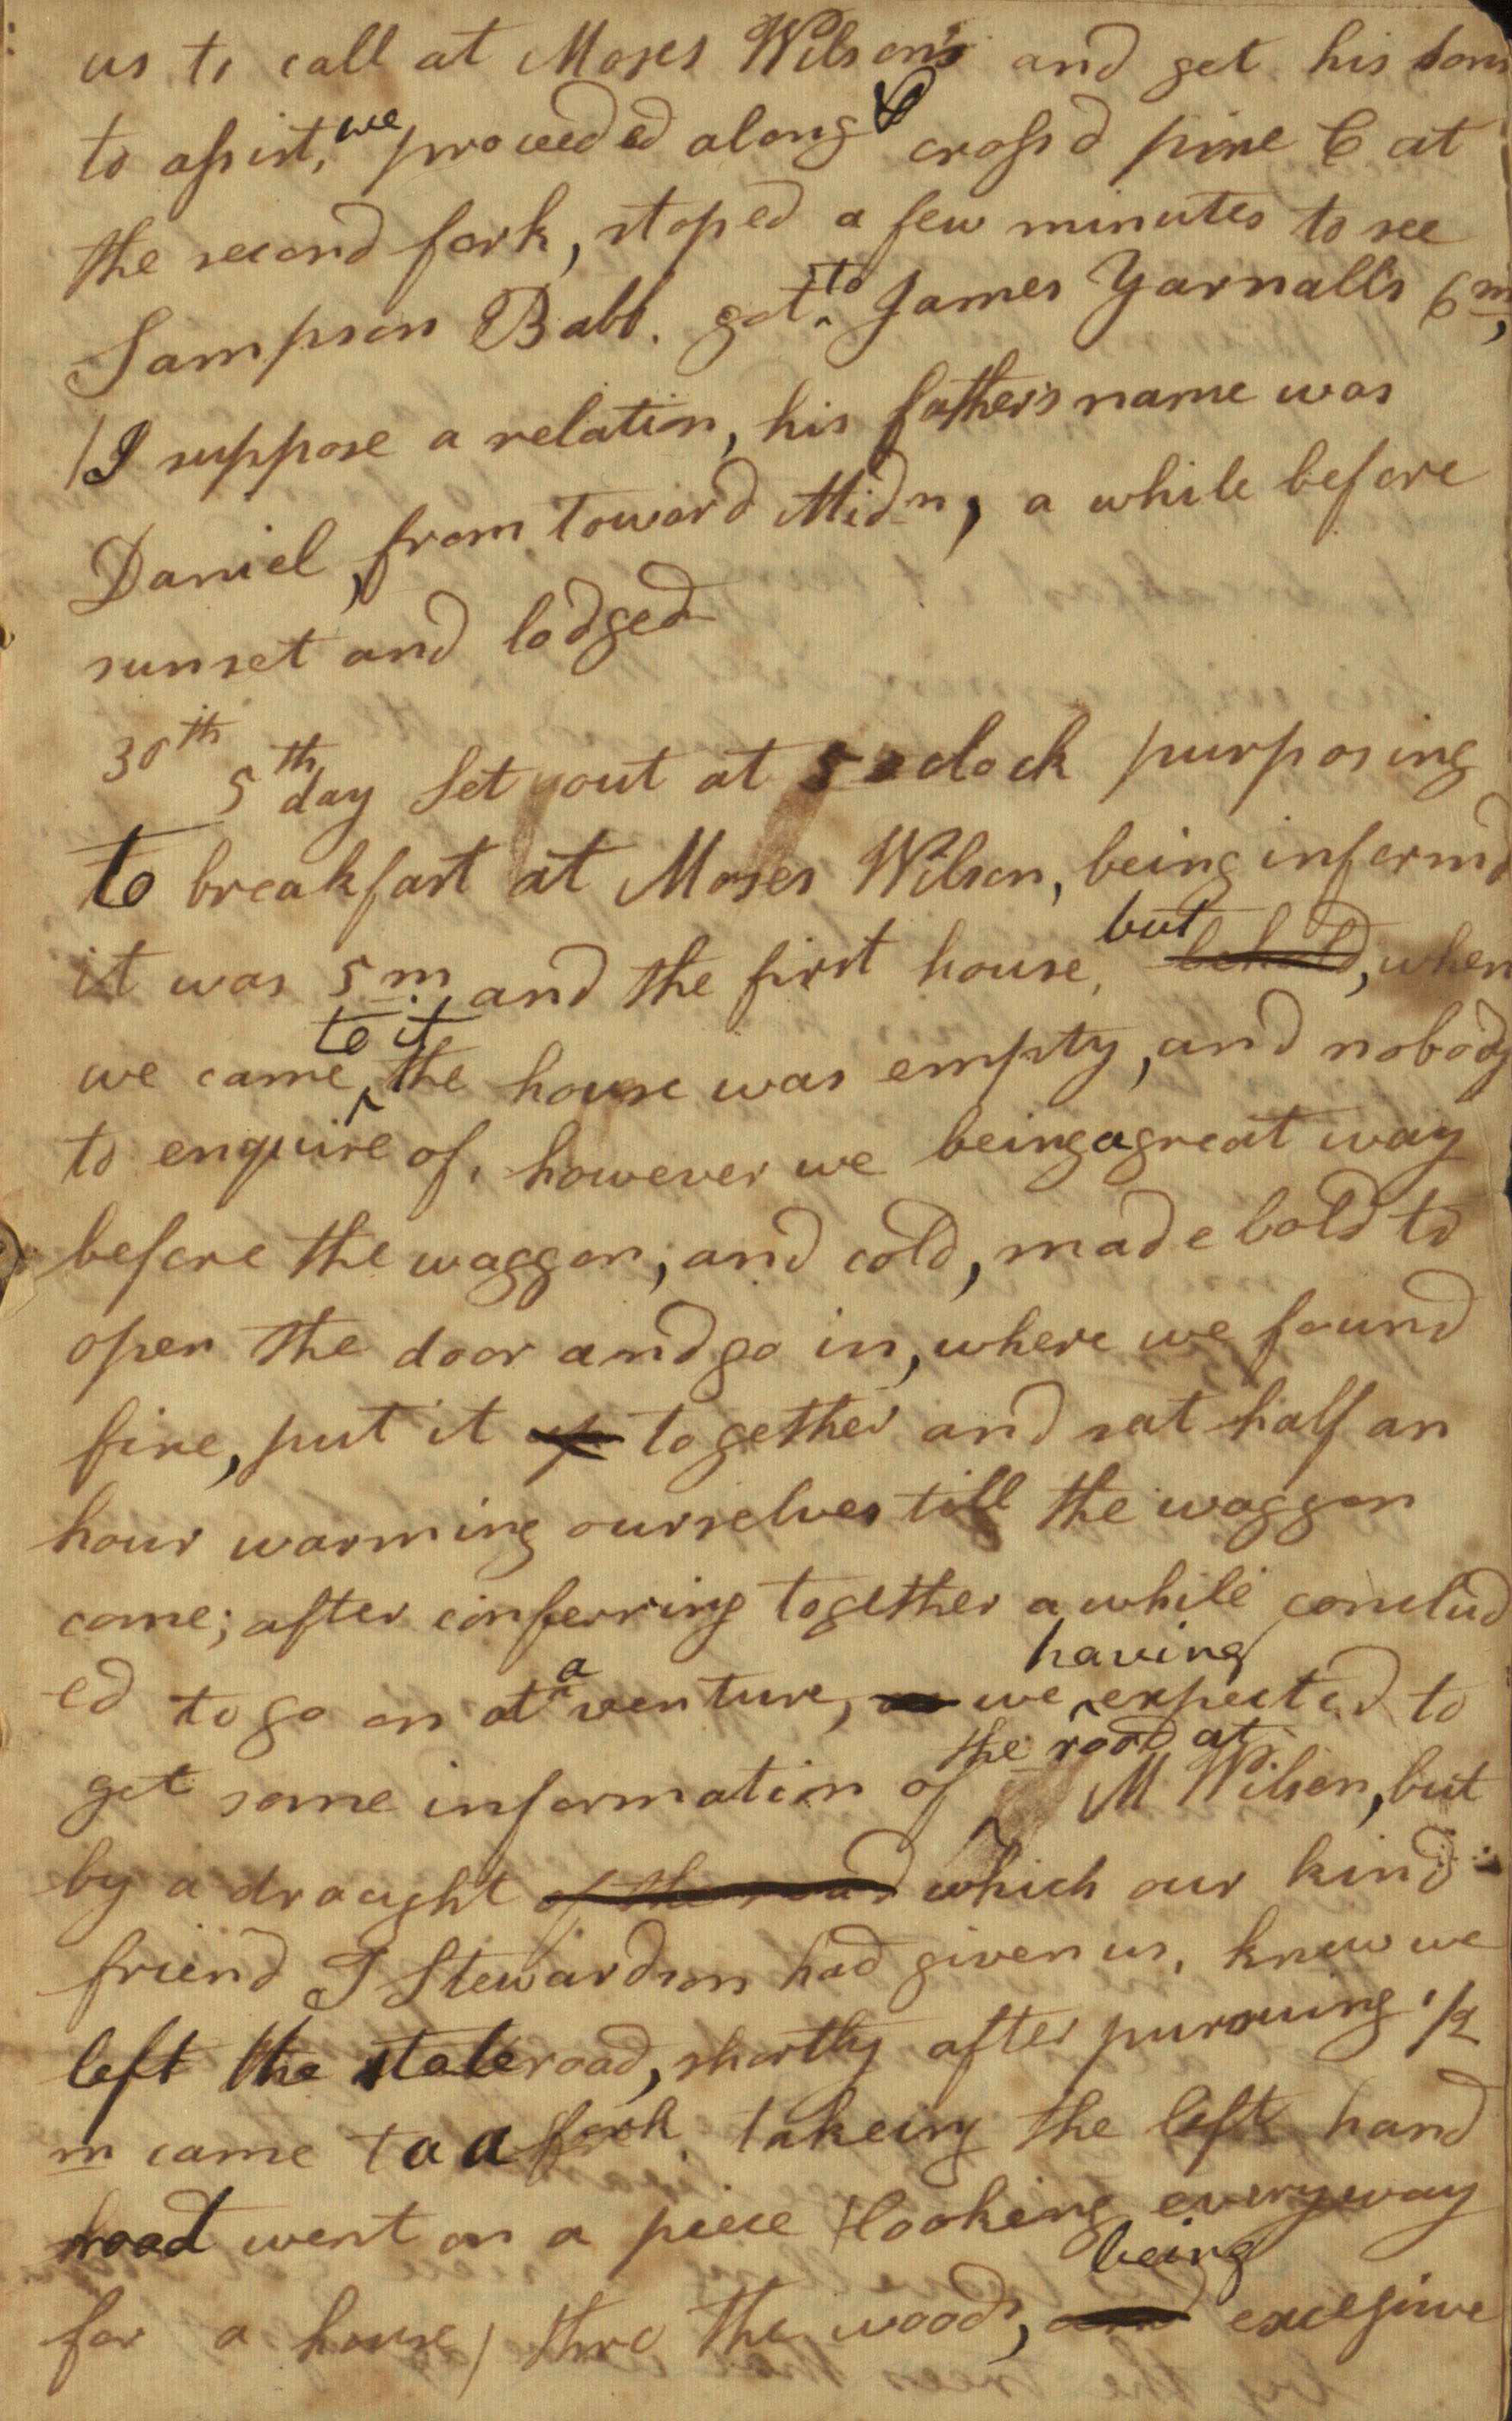 us to call at Moses Wilson's and get his sons
to assist, we proceeded along & cross'd pine C at
the second fork, stoped a few minutes to see
Sampson Babb. got to James Yarnall's 6 m,
(I suppose a relation, his father's name was
Daniel, from toward Midn, a while before
sunset and lodged
30th 5th day Set out at 5 oclock purposing
to breakfast at Moses Wilson, being informd
it was 5 m, and the first house, but behold, when
we came to it the house was empty, and nobody
to enquire of, however we being a great way
before the waggon, and cold, made bold to
open the door and go in, where we found
fire, put it up together and sat half an
hour warming ourselves till the waggon
come; after conferring together a while conclud
ed to go on at a venture, as we having expected to
get some information of the road at M Wilson, but
by a draught of the road which our kind
friend J Stewardson had given us, knew we
left the state road, shortly after pursuing 1/2
m came to a fork, takeing the left hand
road went on a piece (looking every way
for a house) thro the woods, and being excessive